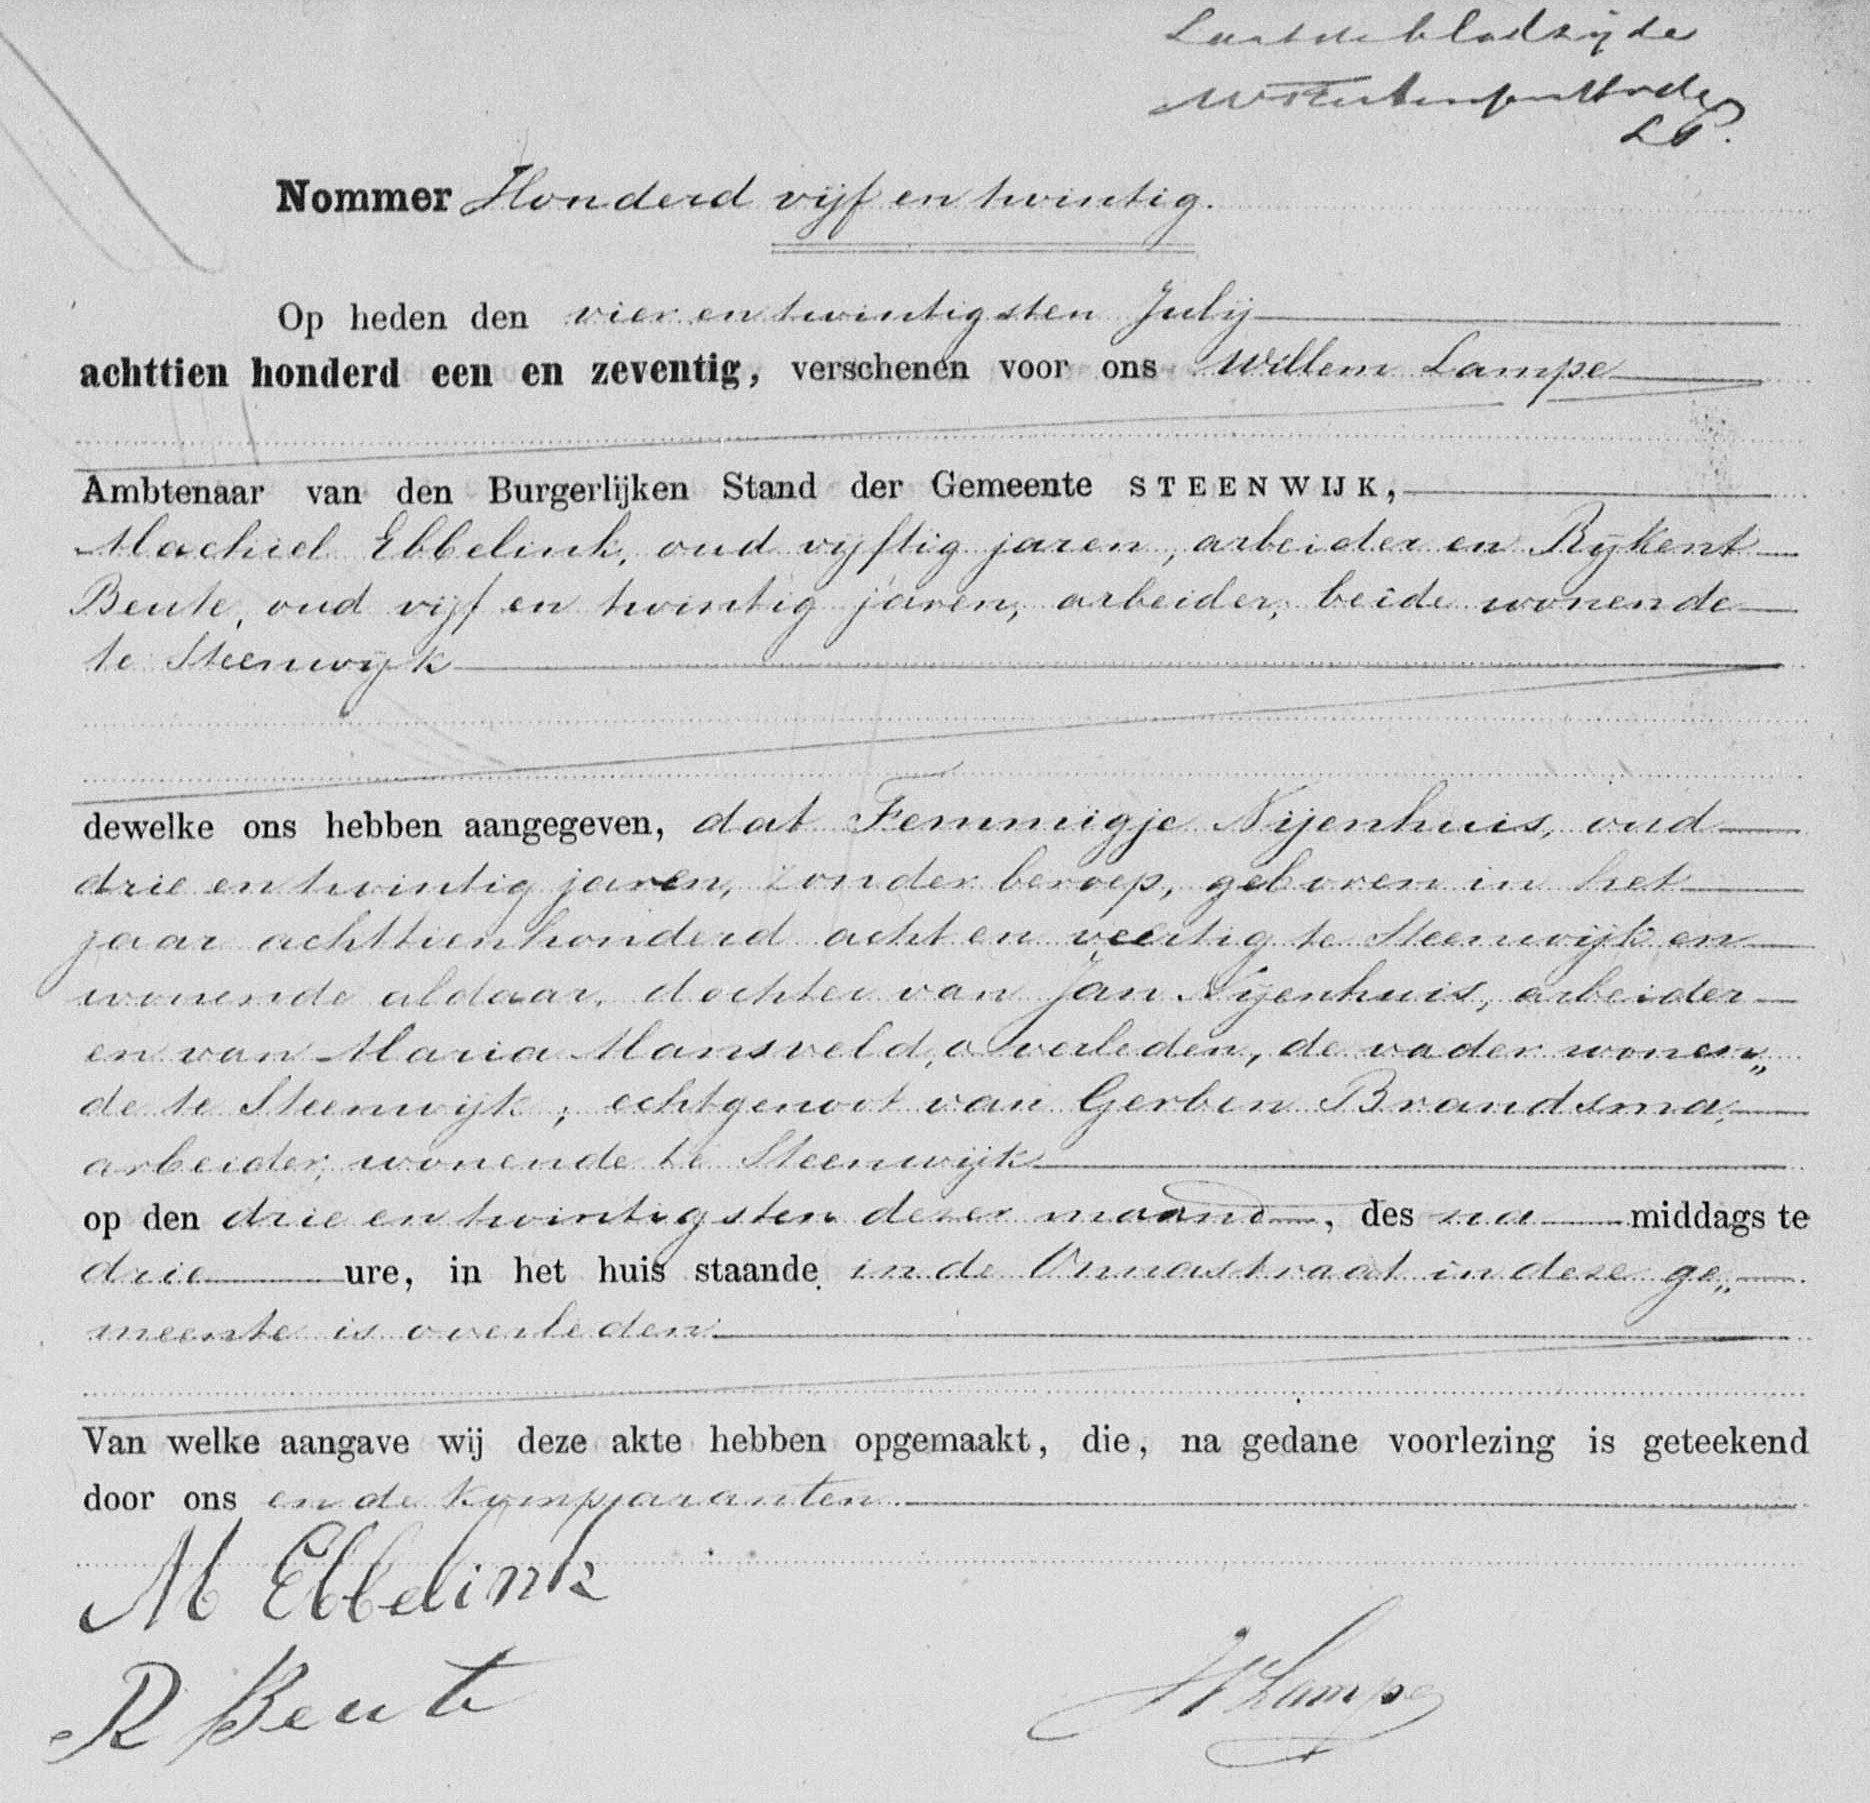 Laatste bladzijde
LP.
Nommer Honderd vijf en twintig.
Op heden den vier en twintigsten Julij
achttien honderd een en zeventig, verschenen voor ons Willem Lampe
Ambtenaar van den Burgerlijken Stand der Gemeente STEENWIJK,
Machiel Ebbelink, oud vijftig jaren, arbeider en Rijkent
Beute, oud vijf en twintig jaren, arbeider, beide wonende
te Steenwijk
dewelke ons hebben aangegeven, dat Femmigje Nijenhuis, oud
drie en twintig jaren, zonder beroep, geboren in het
jaar achttienhonderd acht en veertig te Steenwijk en
wonende aldaar, dochter van Jan Nijenhuis, arbeider
en van Maria Mansveld, overleden, de vader wonen„
de te Steenwijk, echtgenoot van Gerben Brandsma,
arbeider, wonende te Steenwijk
op den drie en twintigsten dezer maand, des na middags te
drie ure, in het huis staande in de Onnastraat in deze ge„
meente is overleden.
Van welke aangave wij deze akte hebben opgemaakt, die, na gedane voorlezing is geteekend
door ons en de komparanten.
M Ebbelink
R Beute
W Lampe